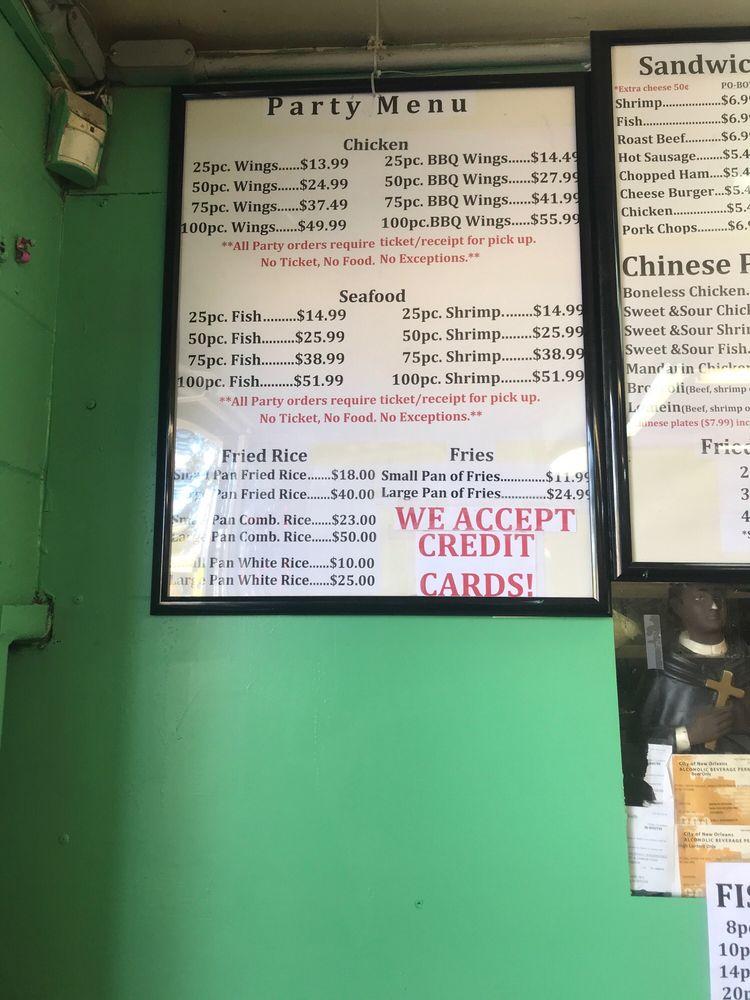 Party Menu
Chicken
25pc. Wings......$13.99
50pc. Wings......$24.99
75pc. Wings......$37.49
100pc. Wings......$49.99
25pc. BBQ Wings......$14.49
50pc. BBQ Wings......$27.99
75pc. BBQ Wings......$41.99
100pc.BBQ Wings......$55.99
**All Party orders require ticket/receipt for pick up.
No Ticket, No Food. No Exceptions.**
Seafood
25pc. Fish.........$14.99
50pc. Fish.........$25.99
75pc. Fish.........$38.99
100pc. Fish.........$51.99
25pc. Shrimp........$14.99
50pc. Shrimp.......$25.99
75pc. Shrimp.......$38.99
100pc. Shrimp.......$51.99
**All Party orders require ticket/receipt for pick up.
No Ticket, No Food. No Exceptions.**
Fried Rice
Small Pan Fried Rice......$18.00
Large Pan Fried Rice......$40.00
Small Pan Comb. Rice......$23.00
Large Pan Comb. Rice......$50.00
Small Pan White Rice......$10.00
Large Pan White Rice......$25.00
Fries
Small Pan of Fries.............$11.99
Large Pan of Fries.............$24.99
WE ACCEPT
CREDIT
CARDS!
Sandwic
*Extra cheese 50¢ PO-BO
Shrimp...................$6.9
Fish.........................$6.9
Roast Beef...........$6.9
Hot Sausage.......$5.4
Chopped Ham....$5.4
Cheese Burger...$5.4
Chicken..................$5.4
Pork Chops.........$6.
Chinese
Boneless Chicken.
Sweet &Sour Chic
Sweet &Sour Shri
Sweet &Sour Fish.
Mandarin Chicken
Broccoli(Beef, shrimp
Lomein(Beef, shrimp
Chinese plates ($7.99) inc
Fried
2
3
4
City of New Orleans
ALCOHOLIC BEVERAGE PER
Beer Only
City of New Orleans
ALCOHOLIC BEVERAGE PE
FIS
8p
10p
14p
20p